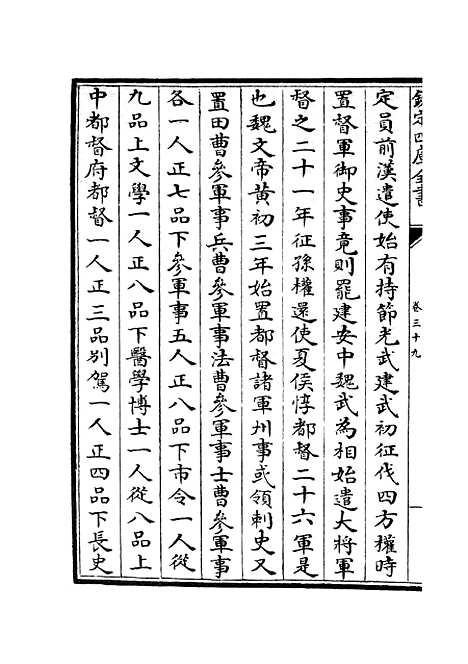 欽定四庫全書
卷三十九
定員前漢遣使始有持節光武建武初征伐四方權時
置督軍御史事竟則罷建安中魏武為相始遣大將軍
督之二十一年征孫權還使夏侯惇都督二十六軍是
也魏文帝黄初三年始置都督諸軍州事或領刺史又
置田曹參軍事兵曹參軍事法曹參軍事士曹參軍事
各一人正七品下參軍事五人正八品下市令一人從
九品上文學一人正八品下醫學博士一人從八品上
中都督府都督一人正三品别駕一人正四品下長史